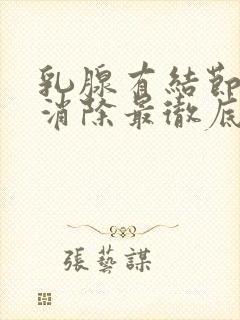 乳腺有結節
消除最徹底
張藝謀